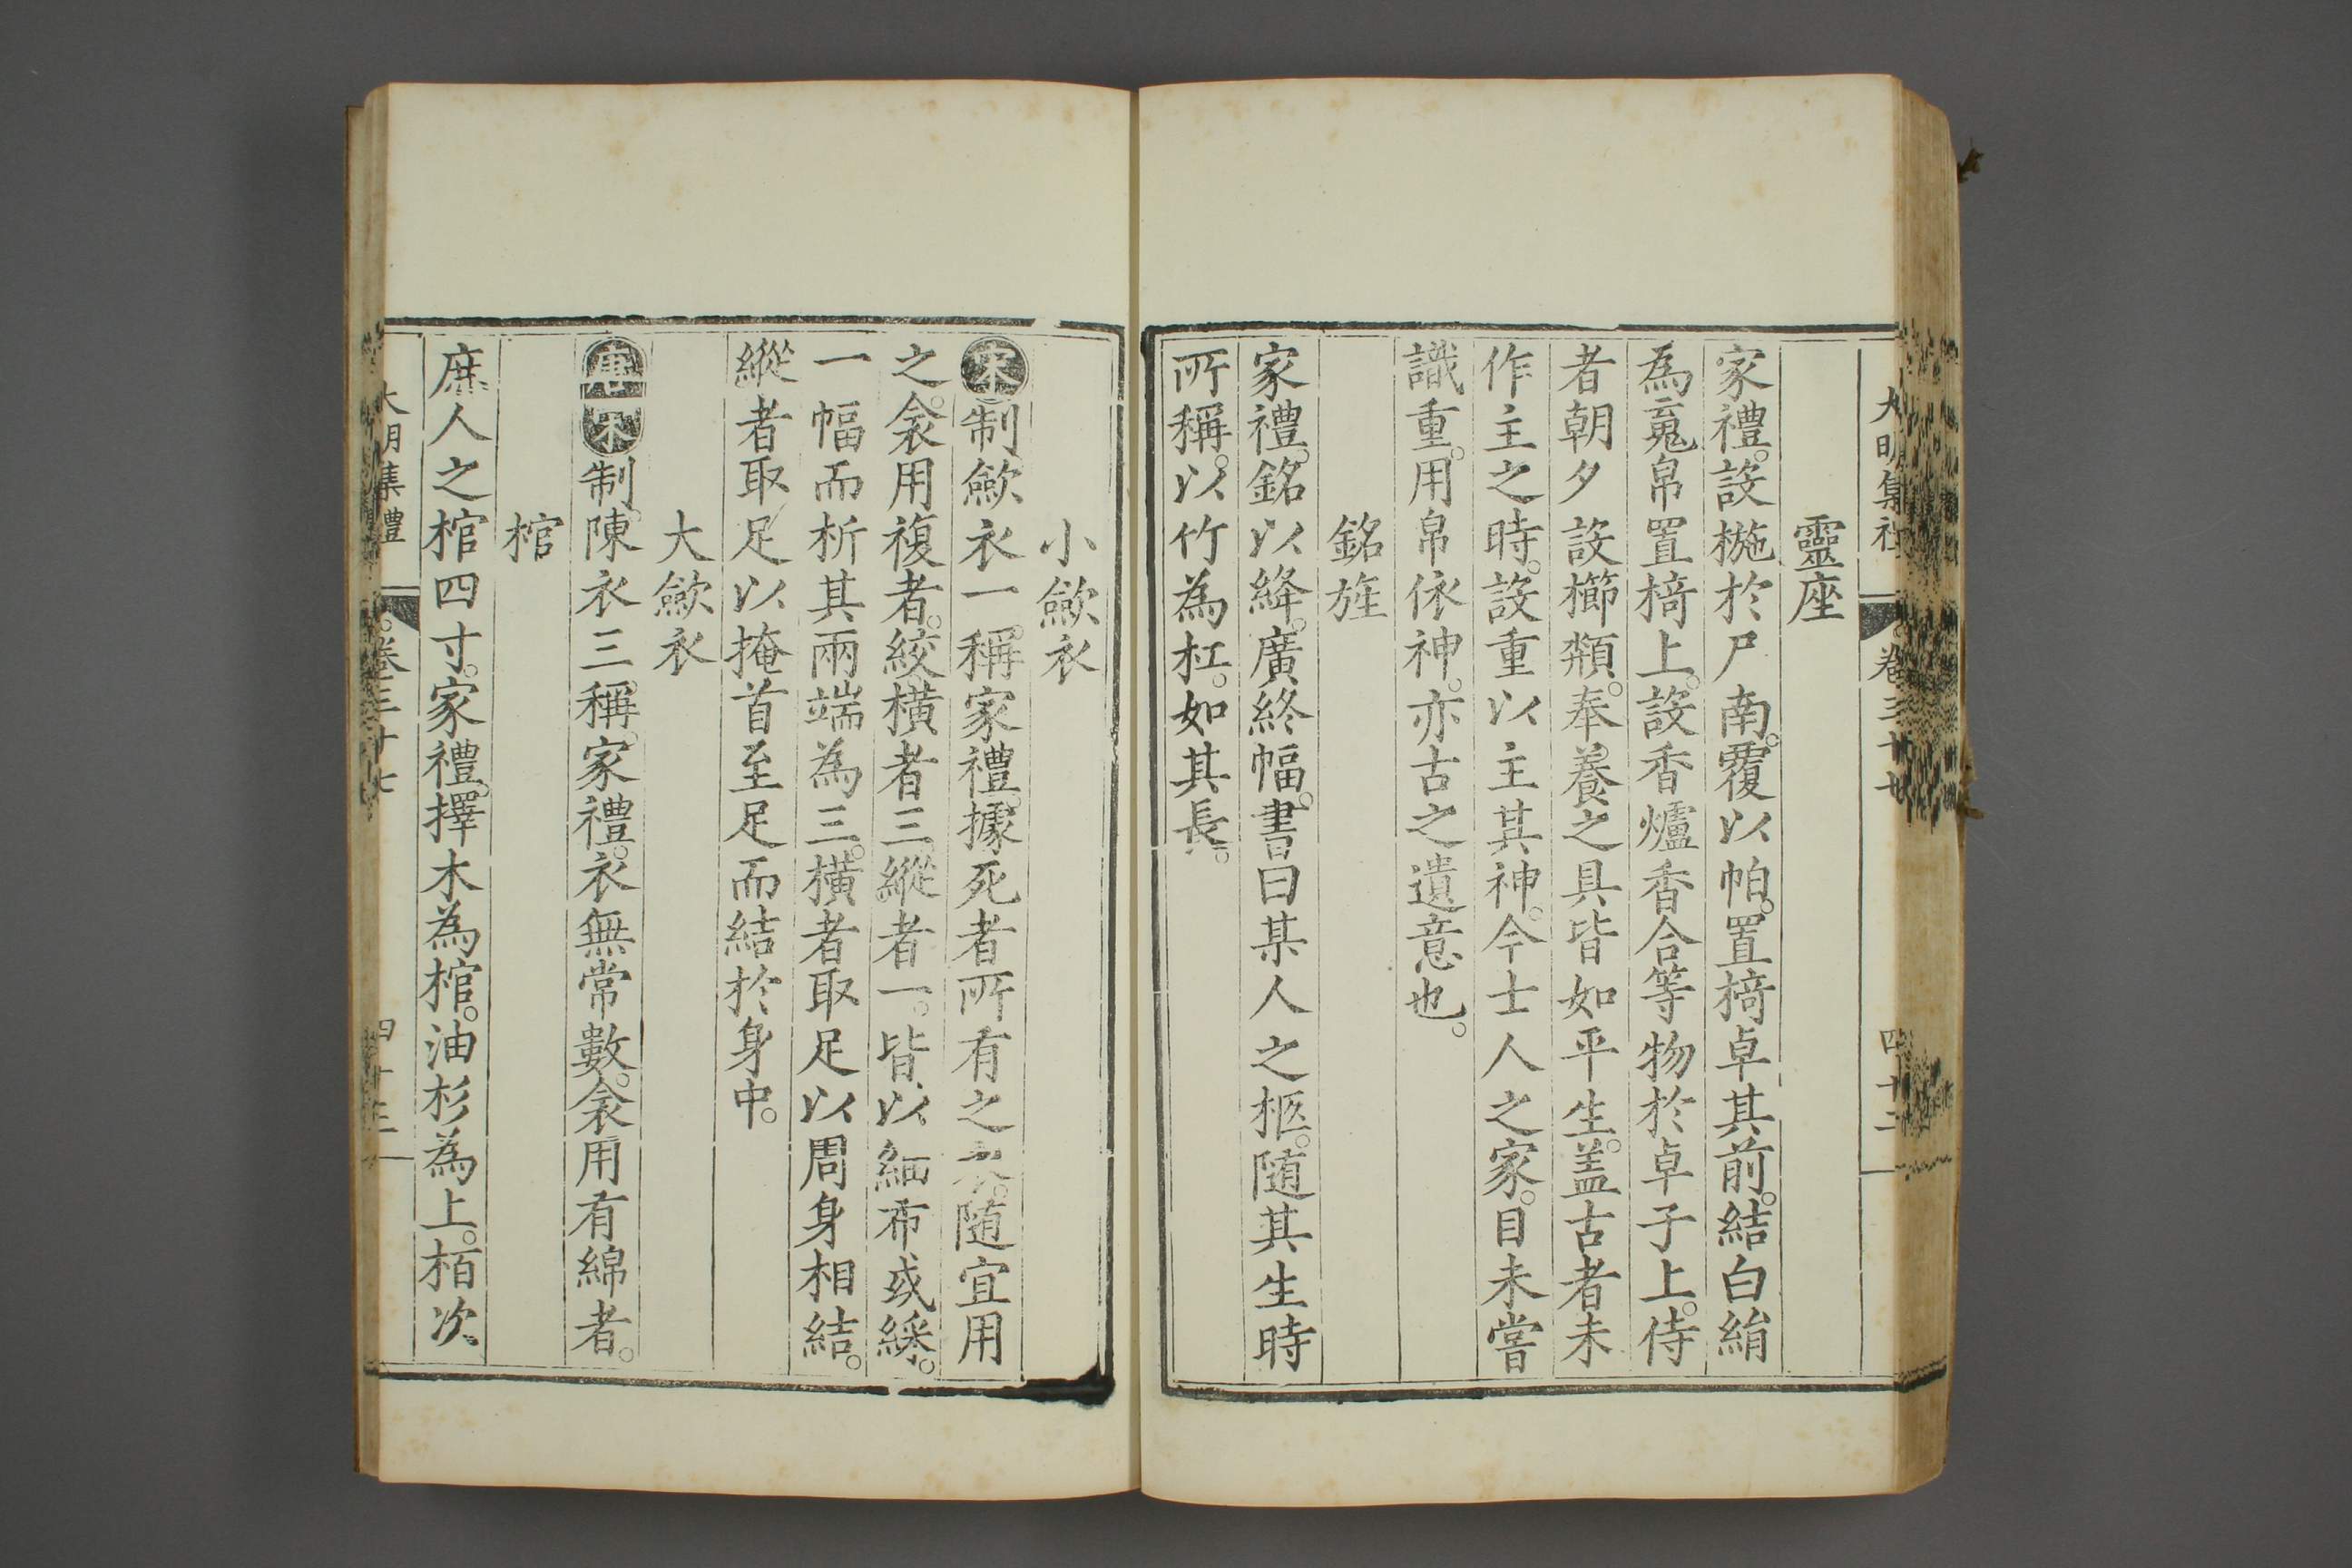 大明集礼 卷三十七 四十二
靈座
家禮。設椸於尸南。覆以帕。置椅卓其前。結白絹
為䰟帛置椅上。設香爐香合等物於卓子上。侍
者朝夕設櫛類。奉養之具皆如平生。盖古者未
作主之時。設重以主其神。今士人之家。目未嘗
識重。用帛依神。亦古之遺意也。
銘旌
家禮。銘以絳。廣終幅。書曰某人之柩。随其生時
所稱。以竹為杠。如其長。
小歛衣
宋制歛衣一稱。家禮。據死者所有之衣。随宜用
之。衾用複者。絞橫者三縱者一。皆以細布或綵。
一幅而析其兩端為三。橫者取足以周身相結。
縱者取足以掩首至足而結於身中。
大歛衣
唐宋制。陳衣三稱。家禮。衣無常數。衾用有綿者。
棺
庶人之棺四寸。家禮。擇木為棺。油杉為上。栢次
大明集禮 卷三十七 四十三